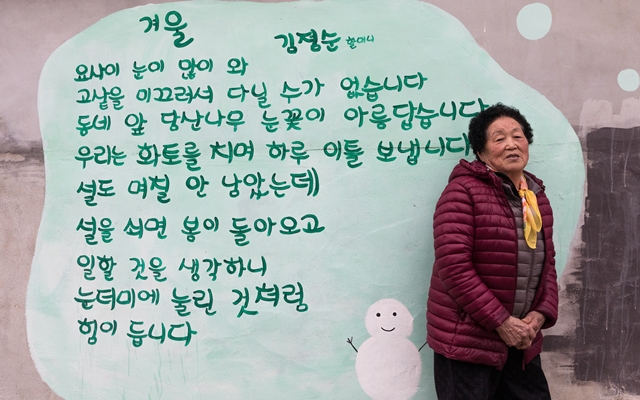 겨울
김점순 할머니
요사이 눈이 많이 와
고샅을 미끄러서 다닐 수가 없습니다
동네 앞 당산나무 눈꽃이 아름답습니다
우리는 화토를 치며 하루 이틀 보냅니다
설도 며칠 안 남았는데
설을 쇠면 봄이 돌아오고
일할 것을 생각하니
눈더미에 눌린 것처럼
힘이 듭니다